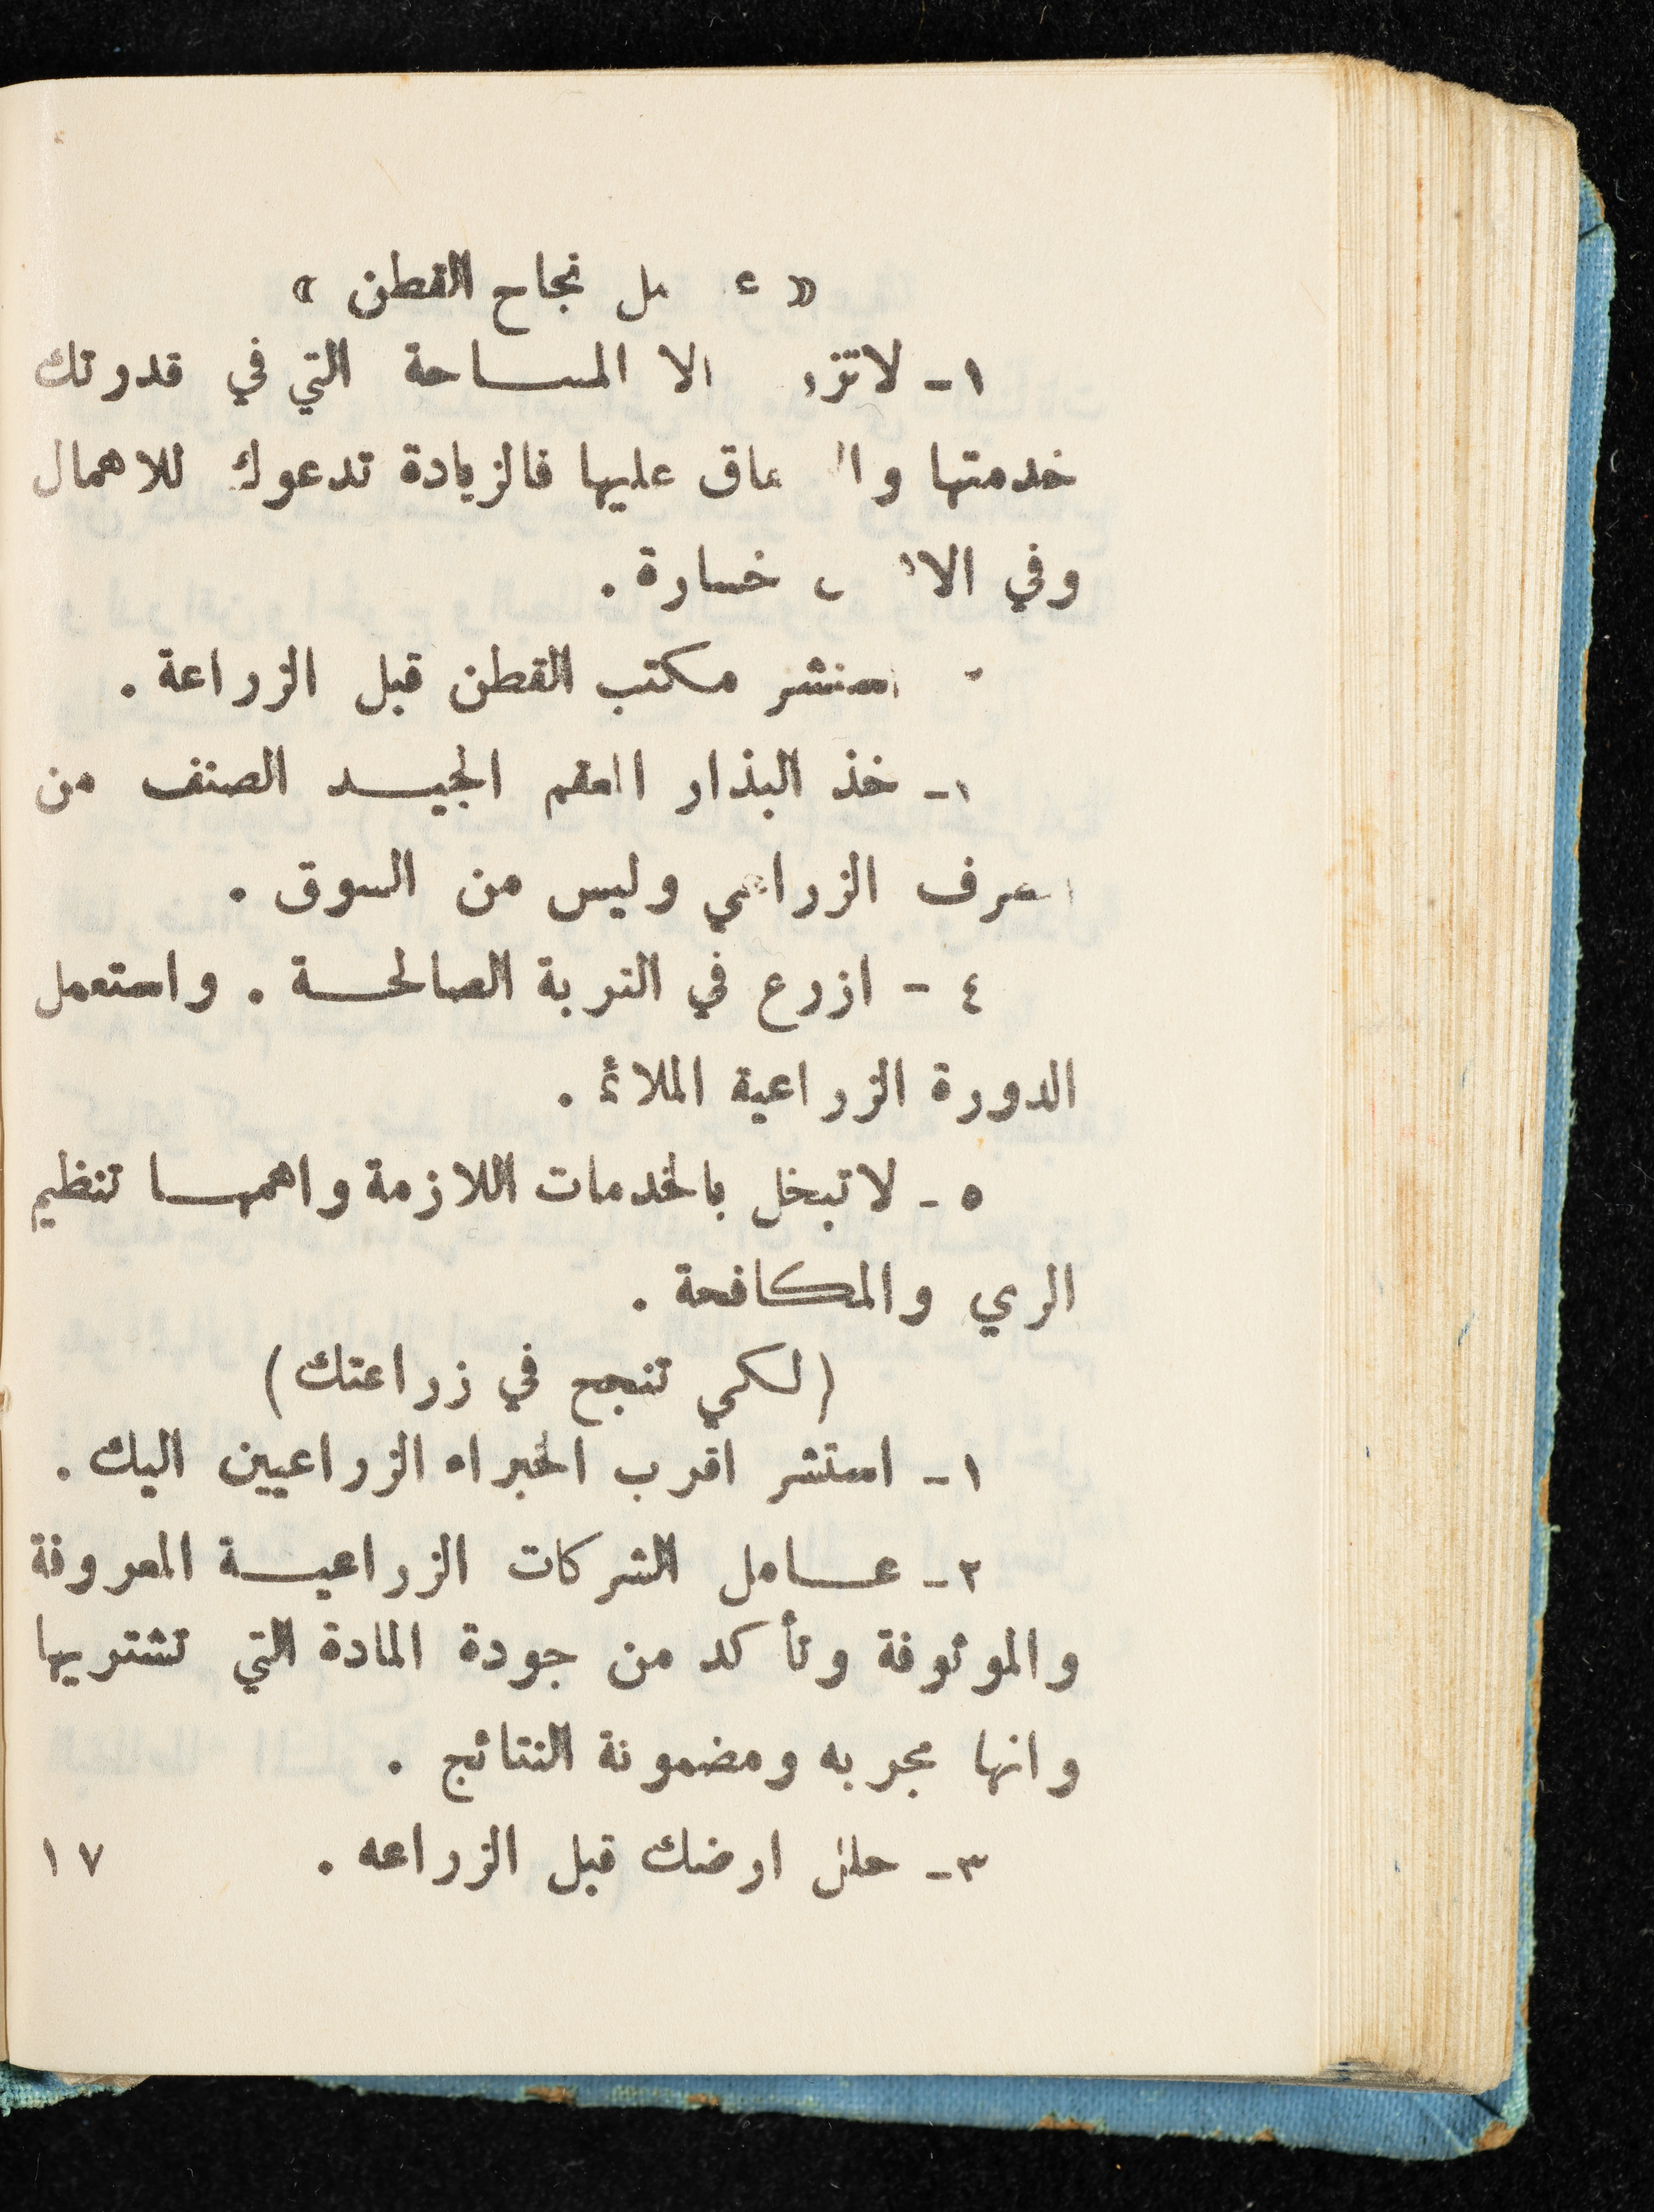 نجاح القطن »
١ـ الا المساحة التي في قدرتك
خدمتها عليها فالزيادة تدعوك للاهمال
وفي خسارة .
استشر مكتب القطن قبل الزراعة .
خذ البذار المعقم الجيد الصنف من
الزراعي وليس من السوق .
٤ - ازرع في التربة الصالحة . واستعمل
الدورة الزراعية الملائمة .
٥ ـ لا تبخل بالخدمات اللازمة واهمها تنظيم
الري والمكافحة .
(لكي تنجح في زراعتك)
١ـ استشر اقرب الخبراء الزراعيين اليك .
٢ـ عامل الشركات الزراعية المعروفة
والموثوقة وتأكد من جودة المادة التي تشتريها
وانها مجربه ومضمونة النتائج .
٣ـ حلل ارضك قبل الزراعه .
١٧